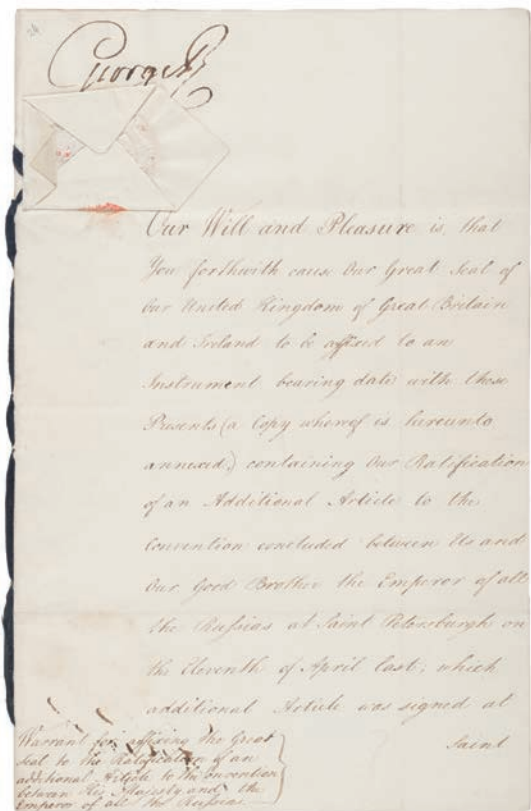 George R
Our Will and Pleasure is, that
You forthwith cause Our Great Seal of
Our United Kingdom of Great Britain
and Ireland to be affixed to an
Instrument bearing date with these
Presents (a Copy whereof is hereunto
annexed,) containing Our Ratification
of an Additional Article to the
Convention concluded between Us and
Our Good Brother the Emperor of all
the Russias at Saint Petersburgh on
the Eleventh of April last; which
additional Article was signed at
Saint
Warrant for affixing the Great
Seal to the Ratification of an
additional Article to the Convention
between His Majesty and the
Emperor of all the Russias.